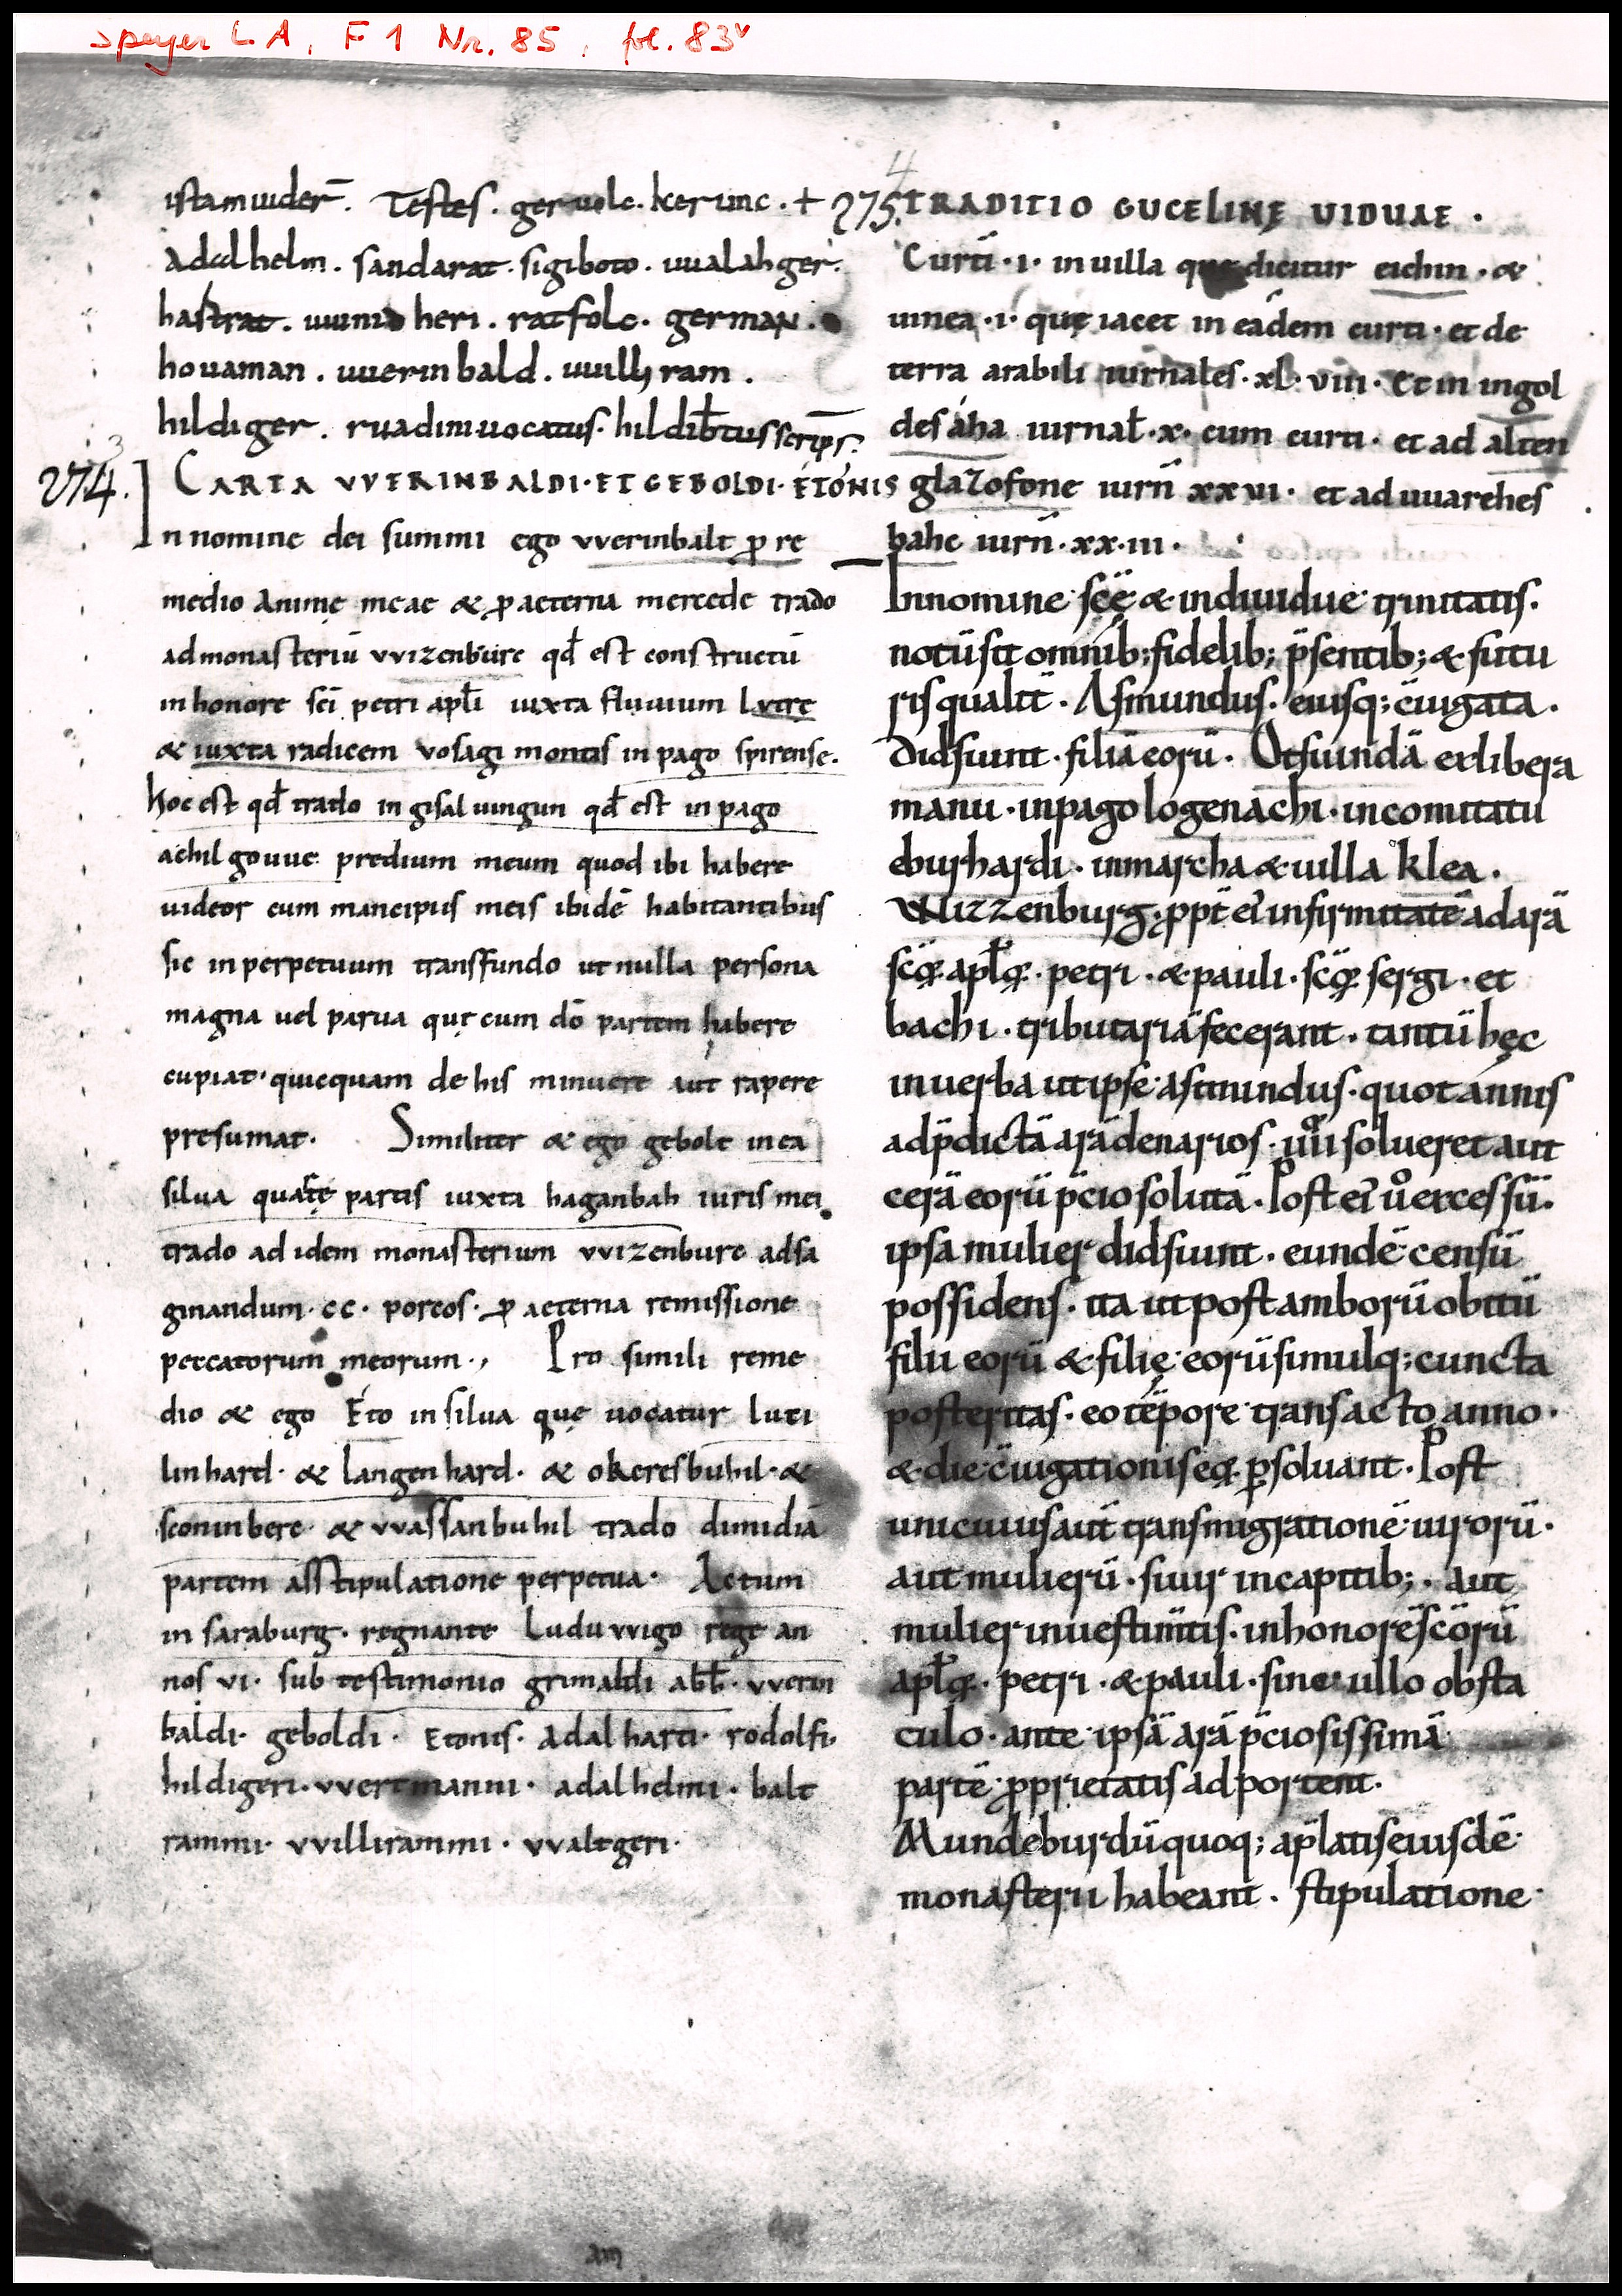 Speyer L.A, F 1 Nr. 85, fol. 83v
istam uider̄. Testes. geruolc. kerunc. +
Adalhelm. sandarat. sigiboto. uualahger.
hastrat. uuniheri. ratfolc. german.
houaman. uuerinbald. uuilliram.
hildiger. ruadiniuocatus. hildib̄tus scrips̄.
3
274.
CARTA VVERINBALDI · ET GEBOLDI · ETONIS
In nomine dei summi ego vverinbalt ꝑ re
medio Animę meae & ꝑ aeterna mercede trado
ad monasteriū vvizenburc qđ est constructū
in honore scī petri apłi iuxta fluuium Lutre
& iuxta radicem vosagi montis in pago spirense.
hoc est qđ trado in gisaluuingun qđ est in pago
achilgouue predium meum quod ibi habere
uideor cum mancipiis meis ibidē habitantibus
sic in perpetuum transfundo ut nulla persona
magna uel parua quę cum dō partem habere
cupiat · quicquam de his minuere aut rapere
presumat. Similiter & ego gebolt in ea
silua quartę partis iuxta haganbah iuris mei
trado ad idem monasterium vvizenburc ad sa
ginandum · cc · porcos · ꝑ aeterna remissione
peccatorum meorum ·, Pro simili reme
dio & ego Eto in silua quę uocatur luti
linhard · & langenhard · & okeresbuhil · &
sconinberc · & vvassanbuhil trado dimidiā
partem asstipulatione perpetua · Actum
in saraburg · regnante Luduvvigo rege an
nos vi · sub testimonio grimaldi abb̄ · vverin
baldi · geboldi · Etonis · Adalharti · rodolfi.
hildigeri · vvertmanni · adalhelmi · balt
rammi · vvillirammi · vvaltgeri ·
4
275. TRADITIO GUCELINĘ UIDUAE ·
Curtī · i · in uilla quę dicitur eichin · &
uinea · i · quę iacet in eadem curti · et de
terra arabili iurnales · xl · viii · Et in ingol
desaha iurnal̄ · x · cum curti · et ad alten
glazofone iurn̄ xxvi · et ad uuarehes
bahc iurn̄ · xx · iii ·
In nomine scē & indiuidue trinitatis.
notū sit omnib; fidelib; p̄sentib; & futu
ris qualit̄ . Asmundus. eiusq; c̄iugata.
didsuint · filiā eorū · Otsuindā ex libera
manu · in pago logenachi · in comitatu
eburhardi · in marcha & uilla klea.
Wizzenburg · ꝓpt̄ ei infirmitatē ad arā
scōꝝ apłoꝝ · petri · & pauli · scōꝝ sergi · et
bachi · tributariā fecerant · tantū hęc
in uerba ut ipse asmundus · quot annis
ad p̄dictā arā denarios · uııı solueret aut
cerā eorū p̄cio solutā · Post ei u° excessū.
ipsa mulier didsuint · eundē censū
possidens · ita ut post amborū obitū
filii eorū & filię eorū simulq; cuncta
posteritas · eo tēpore transacto anno ·
& die c̄iugationis eoꝝ ꝑsoluant · Post
unicuius aut̄ transmigrationē uirorū ·
aut mulierū · si uir in capitib; · aut
mulier in uestim̄tis · in honorē scōrū
apłoꝝ · petri · & pauli · sine ullo obsta
culo · ante ipsā arā p̄ciosissimā
partē ꝓprietatis ad portent.
Mundeburdū quoq; ap̄latis eiusdē
monasterii habeant · stipulatione